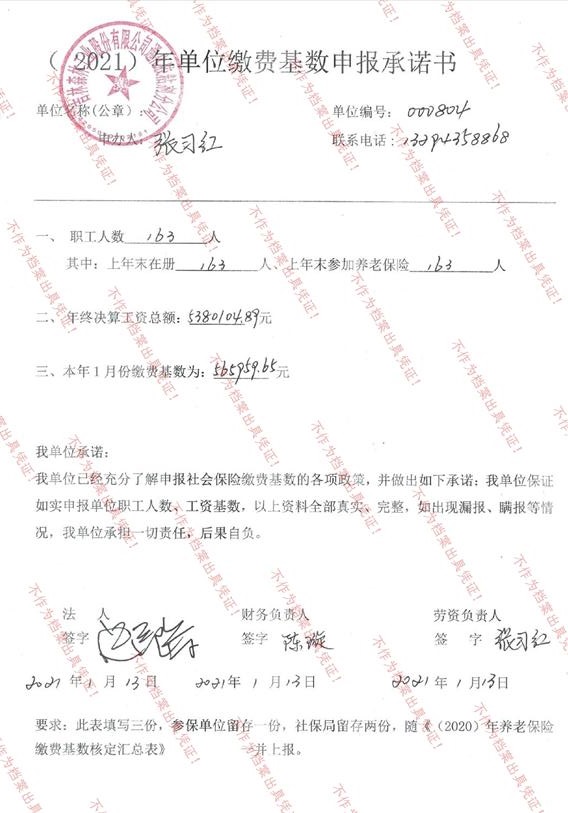 （ 2021）年单位缴费基数申报承诺书
单位名称(公章）： 单位编号： 000804
申办人： 张习红 联系电话：13294358868
一、 职工人数 163 人
其中：上年末在册 163 人、上年末参加养老保险 163 人
二、年终决算工资总额：5380104.89元
三、本年1月份缴费基数为：565959.65元
我单位承诺：
我单位已经充分了解申报社会保险缴费基数的各项政策，并做出如下承诺：我单位保证
如实申报单位职工人数、工资基数，以上资料全部真实、完整，如出现漏报、瞒报等情
况，我单位承担一切责任，后果自负。
法 人 财务负责人 劳资负责人
签字 签字 陈璇 签 字 张习红
2021 年 1 月 13 日 2021年 1 月 13日 2021 年 1 月 13日
要求：此表填写三份，参保单位留存一份，社保局留存两份，随《（2020）年养老保险
缴费基数核定汇总表》 一并上报。
不作为档案出具凭证！